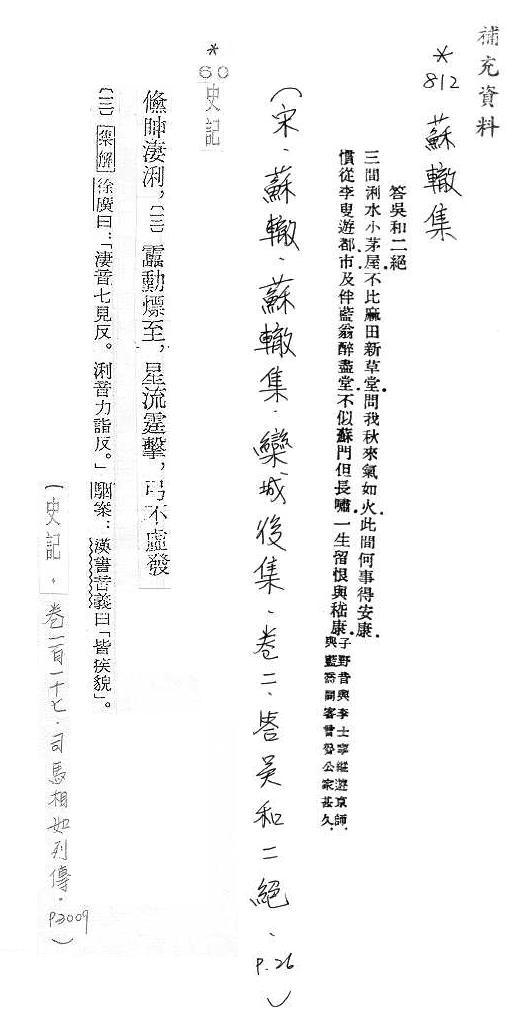 補充資料
*812 蘇轍集
答吳和二絕
三間浰水小茅屋.不比麻田新草堂.問我秋來氣如火.此間何事得安康.
慣從李叟遊都市.及伴藍翁醉畫堂.不似蘇門但長嘯.一生留恨與嵇康.
子野昔與李士寧縱遊京師.
與藍喬同客曾魯公家甚久.
(宋.蘇轍.蘇轍集.欒城後集.卷二.答吳和二絕.p.26)
*60 史記
儵眒淒浰,〔三〕靁動熛至,星流霆擊,弓不虛發
〔三〕集解徐廣曰:「淒音七見反。浰音力詣反。」駰案:漢書音義曰「皆疾貌」。
(史記.卷一百一十七.司馬相如列傳.p3009)